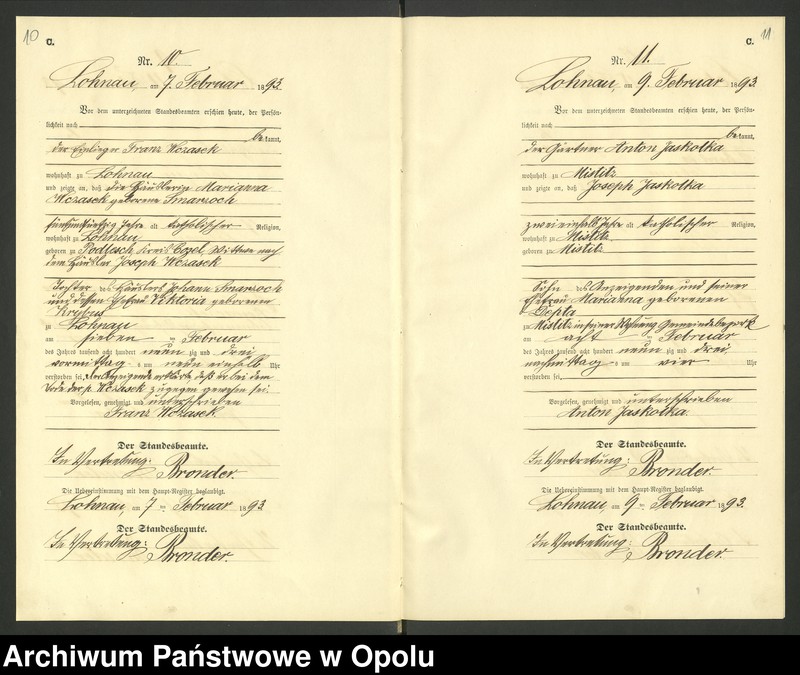 10
C.
Nr. 10.
Lohnau, am 7. Februar 1893.
Vor dem unterzeichneten Standesbeamten erschien heute, der Persön-
lichkeit nach
bekannt,
der Einlieger Franz Wozasek
wohnhaft zu Lohnau
und zeigte an, daß die Häuslerin Marianna
Wozasek geborene Smarzoch
fünfundfünfzig Jahre alt, katholischer Religion,
wohnhaft zu Lohnau
geboren zu Podlesch, Kreis Cosel, Wittwe nach
dem Häusler Joseph Wozasek
Tochter des Häuslers Johann Smarzoch
und dessen Ehefrau Viktoria geborenen
zu Lohnau
am sieben ten Februar
des Jahres tausend acht hundert neun zig und drei
vormittag s um neun einhalb Uhr
verstorben sei. Der Anzeigende erklärte, daß er bei dem
Tode der p. Wozasek zugegen gewesen sei.
Vorgelesen, genehmigt und unterschrieben
Franz Wozasek
Der Standesbeamte.
In Vertretung:
Bronder.
Die Uebereinstimmung mit dem Haupt-Register beglaubigt.
Lohnau, am 7 ten Februar 1893.
Der Standesbeamte.
In Vertretung: Bronder.
C. 11
Nr. 11.
Lohnau, am 9. Februar 1893.
Vor dem unterzeichneten Standesbeamten erschien heute, der Persön-
lichkeit nach
bekannt,
der Gärtner Anton Jaskolka
wohnhaft zu Mistitz
und zeigte an, daß Joseph Jaskolka
zwei einhalb Jahre alt, katholischer Religion,
wohnhaft zu Mistitz
geboren zu Mistitz
Sohn des Anzeigenden und seiner
Ehefrau Marianna geborenen
Depta
zu Mistitz in seiner Wohnung Gemeindebezirk
am acht ten Februar
des Jahres tausend acht hundert neun zig und drei
nachmittag s um vier Uhr
verstorben sei.
Vorgelesen, genehmigt und unterschrieben
Anton Jaskolka.
Der Standesbeamte.
In Vertretung:
Bronder.
Die Uebereinstimmung mit dem Haupt-Register beglaubigt.
Lohnau, am 9 ten Februar 1893.
Der Standesbeamte.
In Vertretung: Bronder.
Archiwum Państwowe w Opolu